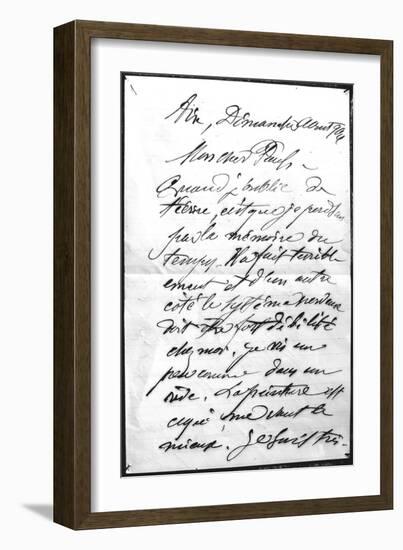 Aix, Dimanche Août
Mon cher Paul -
Quand j'oublie de
t'écrire, c'est que je perds un
peu la mémoire du
temps. Il a fait terrible
ment et d'un autre
côté le système nerveux
doit être fort débilité
chez moi. je vis un
peu comme dans un
vide. La peinture est
ce qui me vaut le
mieux. Je suis très-